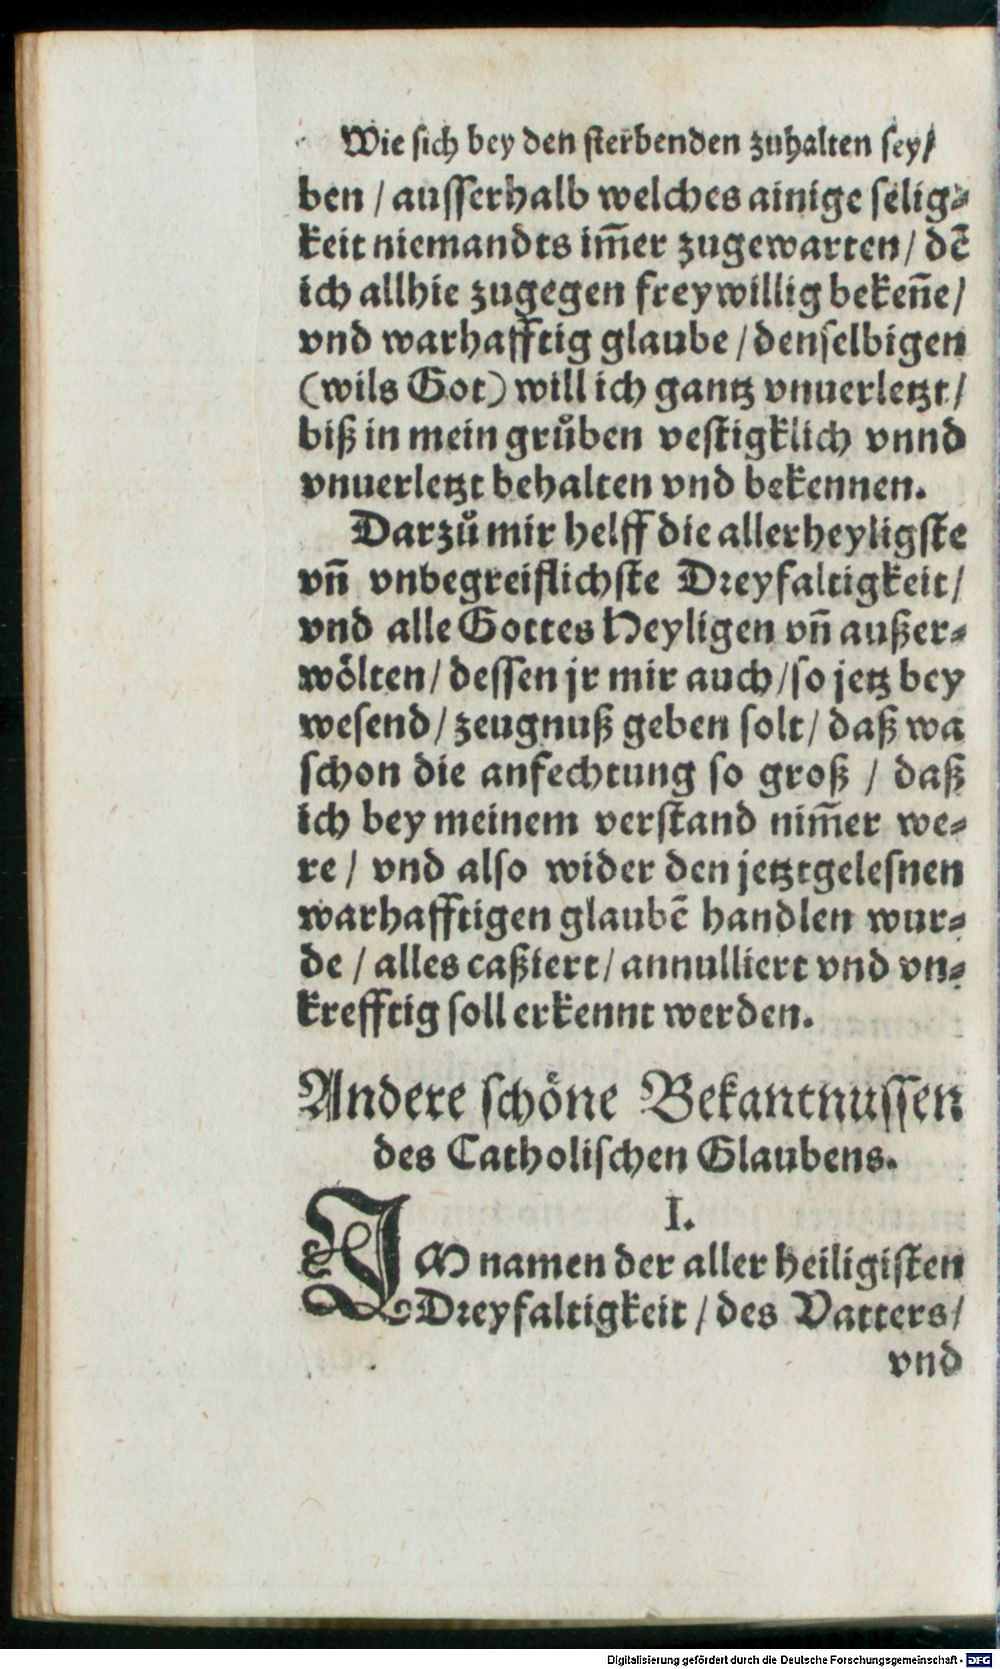 Wie sich bey den sterbenden zuhalten sey/
ben / ausserhalb welches ainige selig⸗
keit niemandts im̃er zugewarten / dẽ
ich allhie zugegen freywillig bekeñe /
vnd warhafftig glaube / denselbigen
(wils Got) will ich gantz vnuerletzt /
biß in mein grůben vestigklich vnnd
vnuerletzt behalten vnd bekennen.
Darzů mir helff die allerheyligste
vñ vnbegreiflichste Dreyfaltigkeit /
vnd alle Gottes Heyligen vñ außer⸗
wölten / dessen jr mir auch / so jetz bey
wesend / zeugnuß geben solt / daß wa
schon die anfechtung so groß / daß
ich bey meinem verstand nim̃er we⸗
re / vnd also wider den jetztgelesnen
warhafftigen glaubẽ handlen wur⸗
de / alles caßiert / annulliert vnd vn⸗
krefftig soll erkennt werden.
Andere schöne Bekantnussen
des Catholischen Glaubens.
I.
IM namen der aller heiligisten
Dreyfaltigkeit / des Vatters /
vnd
Digitalisierung gefördert durch die Deutsche Forschungsgemeinschaft - DFG